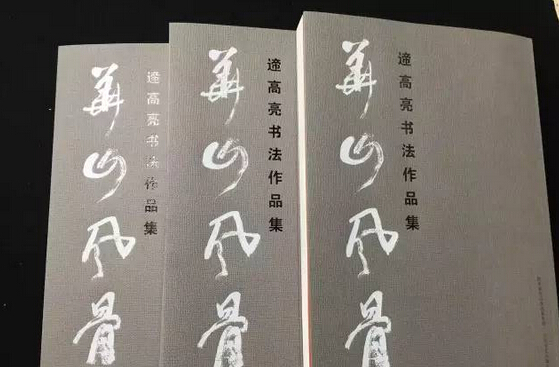 遆高亮书法作品集
華山风骨
遆高亮书法作品集
華山风骨
遆高亮书法作品集
華山风骨